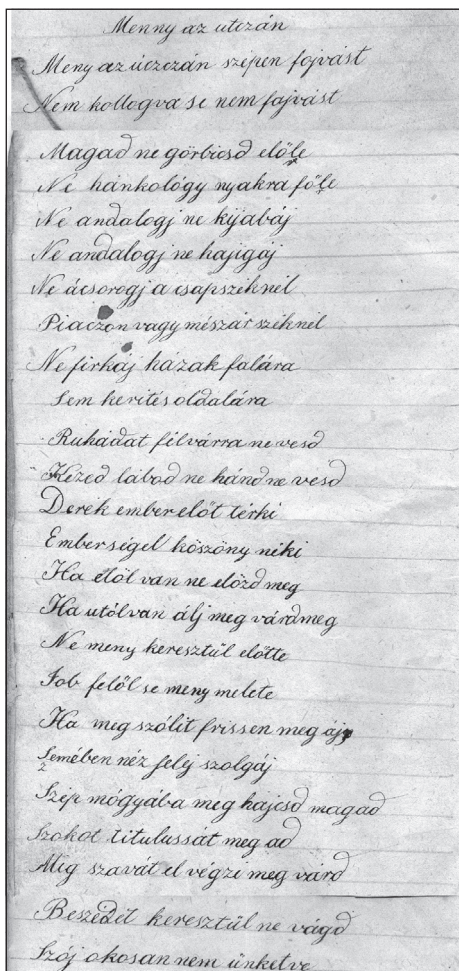 Menny az utczán
Meny az úczczán szépen fojvást
Nem kollogva se nem fajvást
Magad ne görbiesd előle
Ne hánkológy nyakra főle
Ne andalogj ne kijabáj
Ne andalogj ne hajigáj
Ne ácsorogj a csapszéknél
Piaczon vagy mészár széknél
Ne firkáj házak falára
Sem kerités oldalára
Ruhádat félvárra ne vesd
Kezed lábad ne hánd ne vesd
Derék ember előt térki
Emberségel köszöny néki
Ha élöl van ne elözd meg
Ha utólvan álj meg várdmeg
Ne meny keresztül előtte
Job felől se meny melete
Ha meg szólit frissen meg áj
Szemében néz feléj szolgáj
Szép mógyába meg hajcsd magad
Szokot titulussát meg ad
Mig szavát el végzi meg várd
Beszedét keresztül ne vágd
Szój okosan nem ünketve